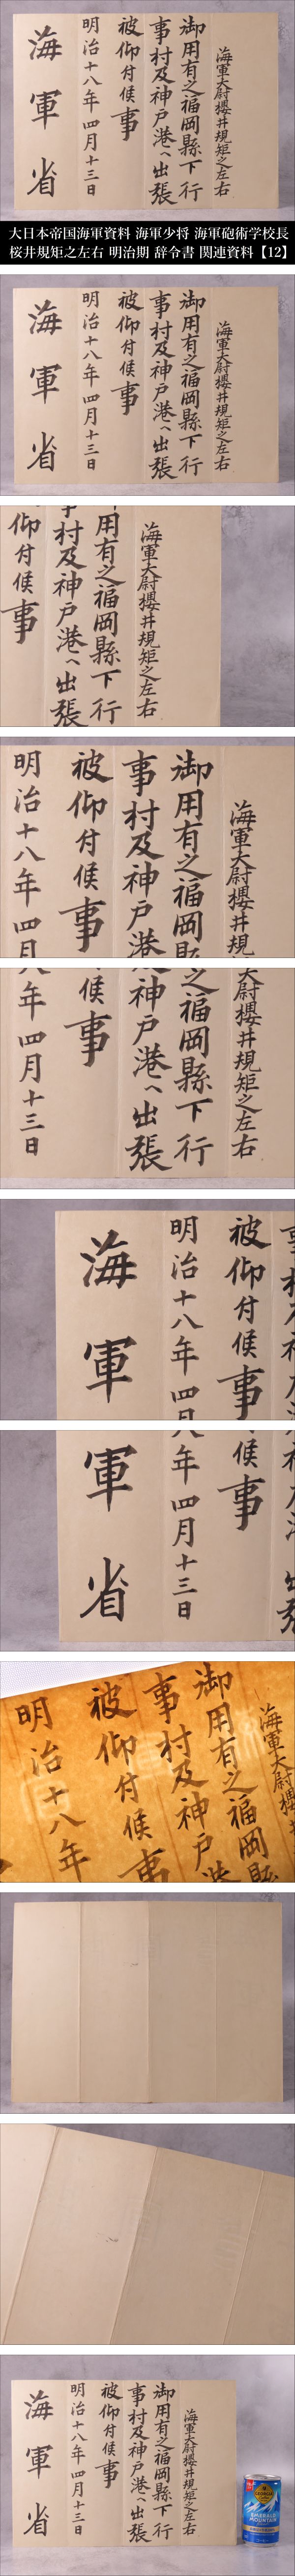 海軍大尉櫻井規矩之左右
御用有之福岡縣下行
事村及神戸港へ出張
被仰付候事
明治十八年四月十三日
海軍省
大日本帝国海軍資料 海軍少将 海軍砲術学校長
桜井規矩之左右 明治期 辞令書 関連資料【12】
海軍大尉櫻井規矩之左右
御用有之福岡縣下行
事村及神戸港へ出張
被仰付候事
明治十八年四月十三日
海軍省
海軍大尉櫻井規矩之左右
用有之福岡縣下行
村及神戸港へ出張
仰付候事
海軍大尉櫻井規
御用有之福岡縣
事村及神戸港
被仰付候事
明治十八年四月
大尉櫻井規矩之左右
之福岡縣下行
神戸港へ出張
候事
年四月十三日
被仰付候事
明治十八年四
海軍
候事
年四月十三日
軍省
海軍大尉櫻
御用有之福岡縣
事村及神戸
被仰付候事
明治十八年
海軍大尉櫻井規矩之左右
御用有之福岡縣下行
事村及神戸港へ出張
被仰付候事
明治十八年四月十三日
海軍省
GEORGIA
EMERALD
MOUNTAIN